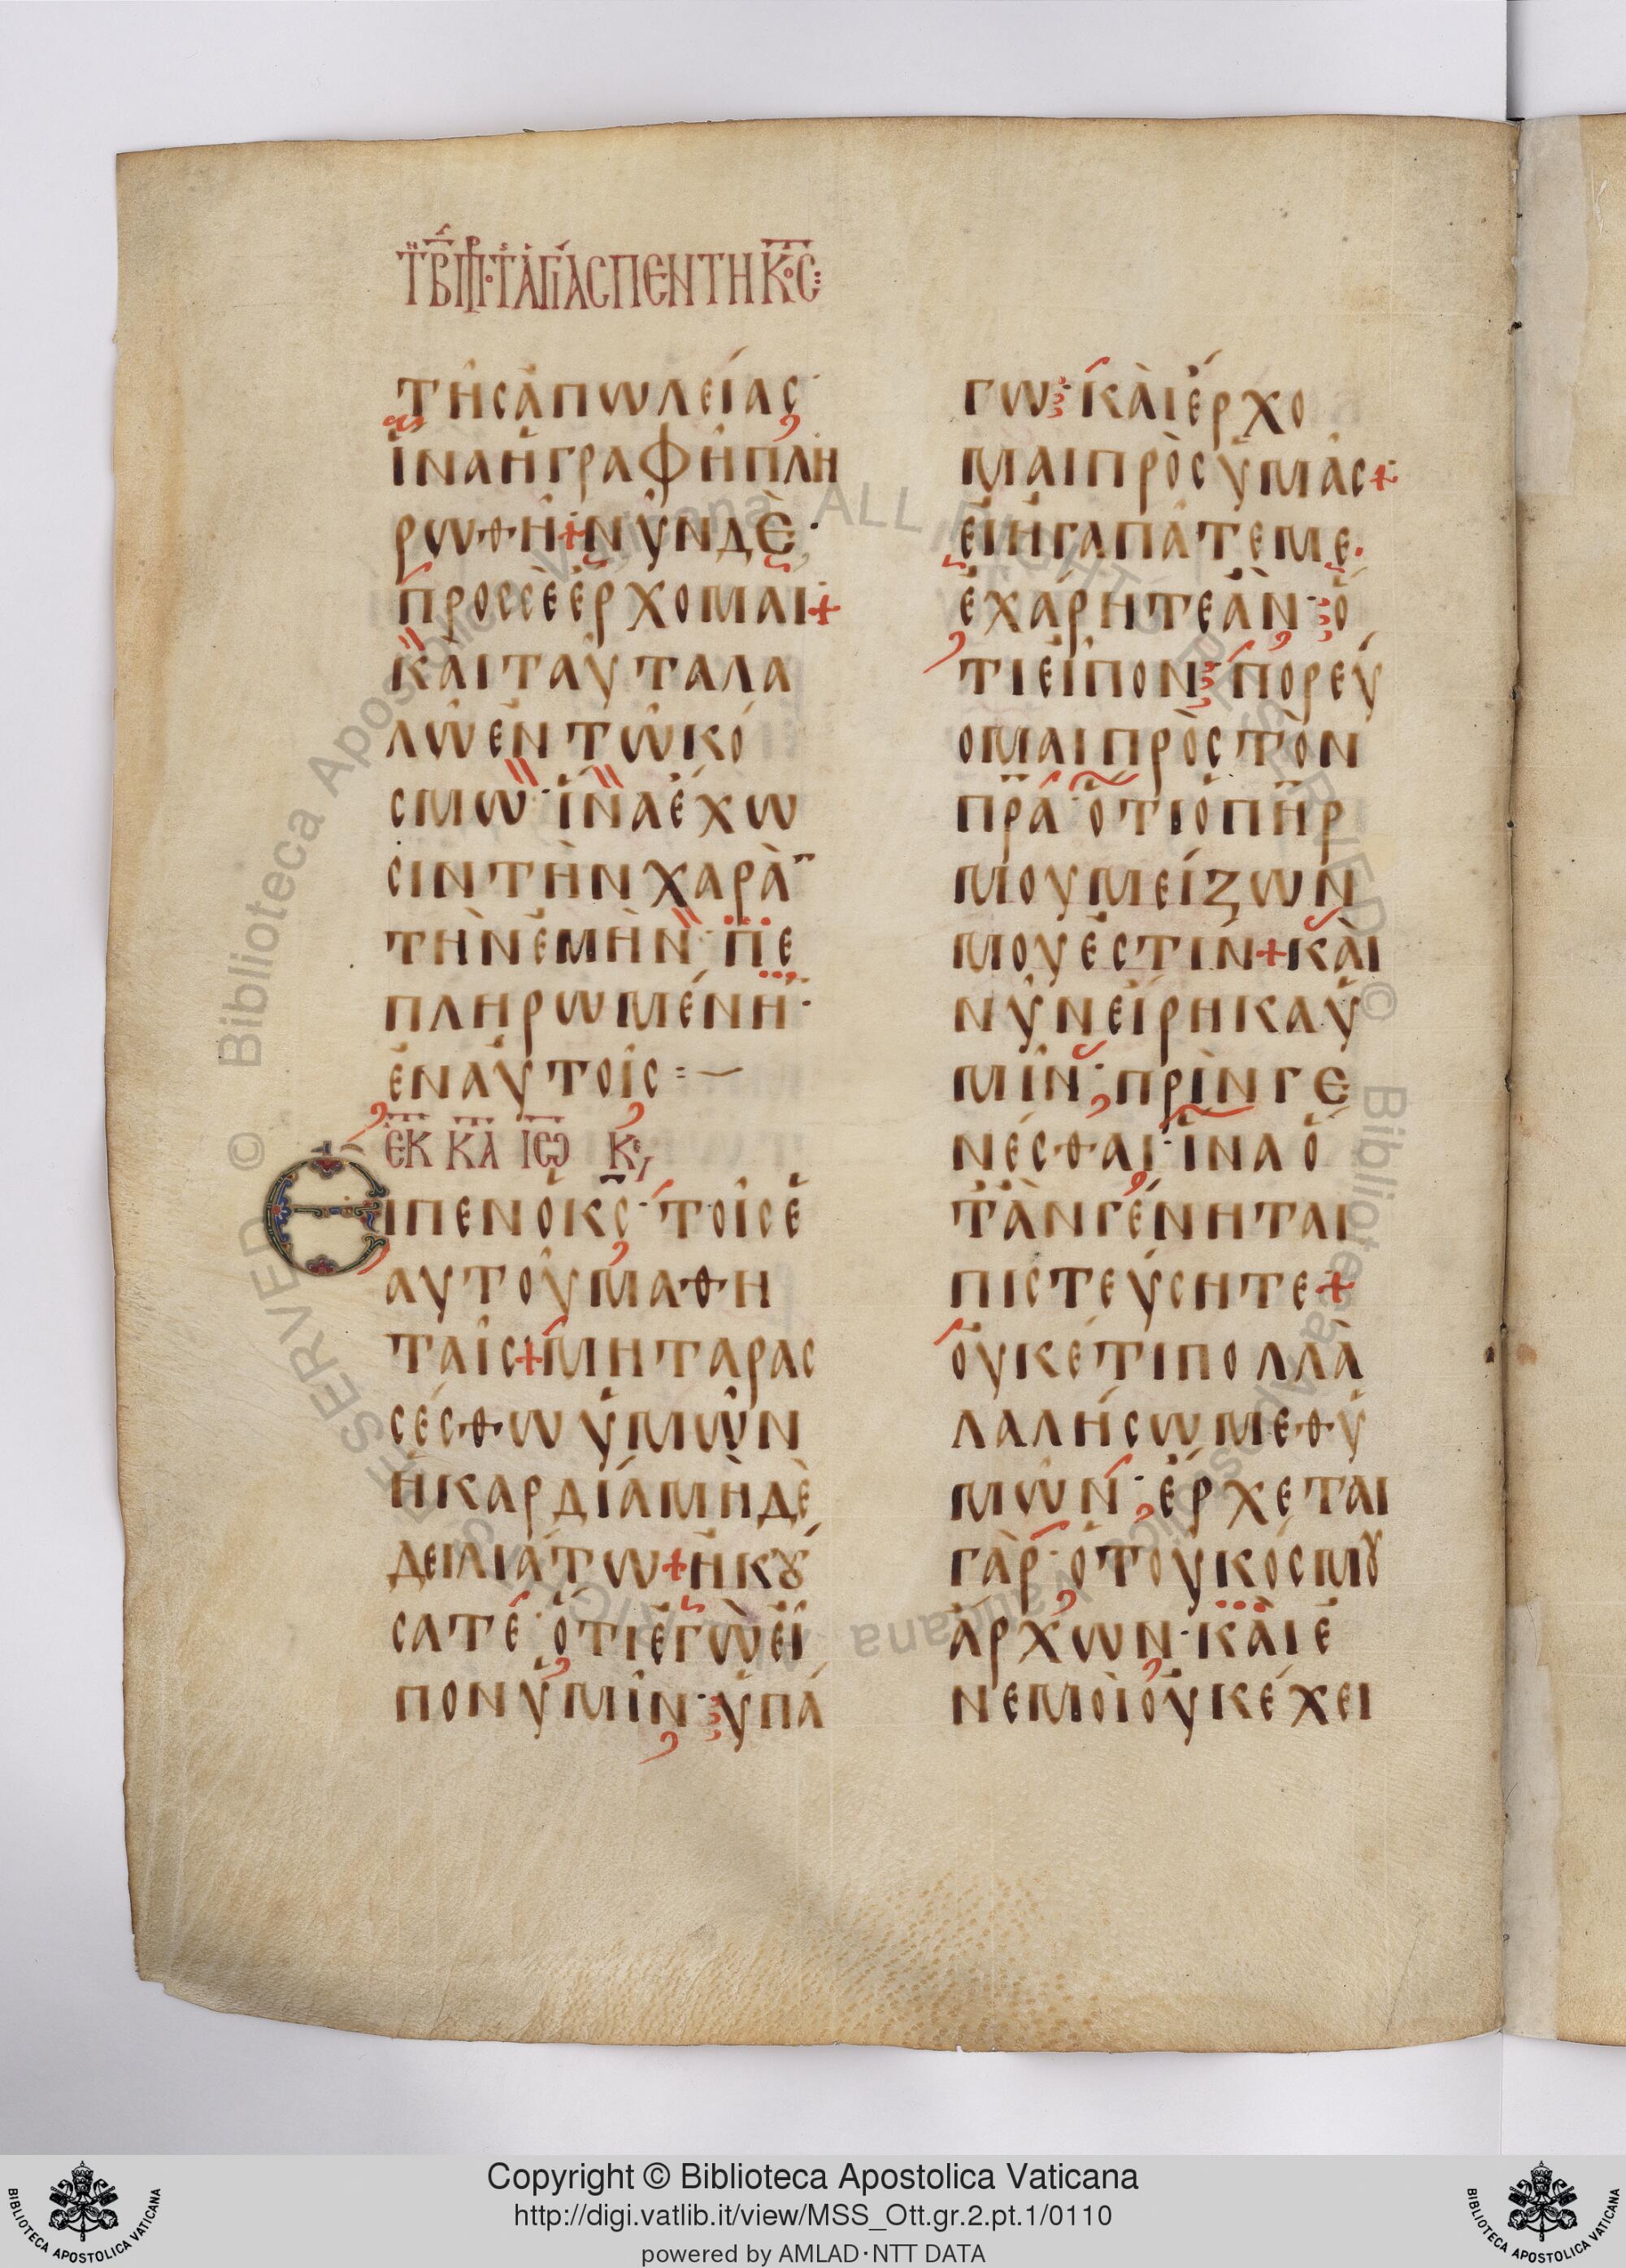 ΤῌΒ ΠΡ· ΤΑΓΙΑΣ ΠΕΝΤΗΚΟΣ:
ΤΗΣΑΠΩΛΕΙΑΣ·
ΙΝΑΗΓΡΑΦΗΠΛΗ
ΡΩΘΗ+ΝΥΝΔΕ·
ΠΡΟΣΣΕΕΡΧΟΜΑΙ+
ΚΑΙΤΑΥΤΑΛΑ
ΛΩΕΝΤΩΚΟ
ΣΜΩ·ΙΝΑΕΧΩ
ΣΙΝΤΗΝΧΑΡΑ
ΤΗΝΕΜΗΝ·ΠΕ
ΠΛΗΡΩΜΕΝΗ·
ΕΝΑΥΤΟΙΣ
ΕΚ ΚΑ ΙΩ Κ
ΕΙΠΕΝΟΚΣ·ΤΟΙΣΕ
ΑΥΤΟΥΜΑΘΗ
ΤΑΙΣ+ΜΗΤΑΡΑΣ
ΣΕΣΘΩΥΜΩΝ
ΗΚΑΡΔΙΑΜΗΔΕ
ΔΕΙΛΙΑΤΩ+ΗΚȢ
ΣΑΤΕ·ΟΤΙΕΓΩΕΙ
ΠΟΝΥΜΙΝ·ΥΠΑ
ΓΩ·ΚΑΙΕΡΧΟ
ΜΑΙΠΡΟΣΥΜΑΣ+
ΕΙΗΓΑΠΑΤΕΜΕ·
ΕΧΑΡΗΤΕΑΝ·Ο
ΤΙΕΙΠΟΝ·ΠΟΡΕΥ
ΟΜΑΙΠΡΟΣΤΟΝ
ΠΡΑ·ΟΤΙΟΠΗΡ
ΜΟΥΜΕΙΖΩΝ
ΜΟΥΕΣΤΙΝ+ΚΑΙ
ΝΥΝΕΙΡΗΚΑΥ
ΜΙΝ·ΠΡΙΝΓΕ
ΝΕΣΘΑΙ·ΙΝΑΟ
ΤΑΝΓΕΝΗΤΑΙ
ΠΙΣΤΕΥΣΗΤΕ+
ΟΥΚΕΤΙΠΟΛΛΑ
ΛΑΛΗΣΩΜΕΘΥ
ΜΩΝ·ΕΡΧΕΤΑΙ
ΓΑΡ·ΟΤΟΥΚΟΣΜȢ
ΑΡΧΩΝ·ΚΑΙΕ
ΝΕΜΟΙΟΥΚΕΧΕΙ
Copyright © Biblioteca Apostolica Vaticana
http://digi.vatlib.it/view/MSS_Ott.gr.2.pt.1/0110
powered by AMLAD·NTT DATA
BIBLIOTECA APOSTOLICA VATICANA
BIBLIOTECA APOSTOLICA VATICANA